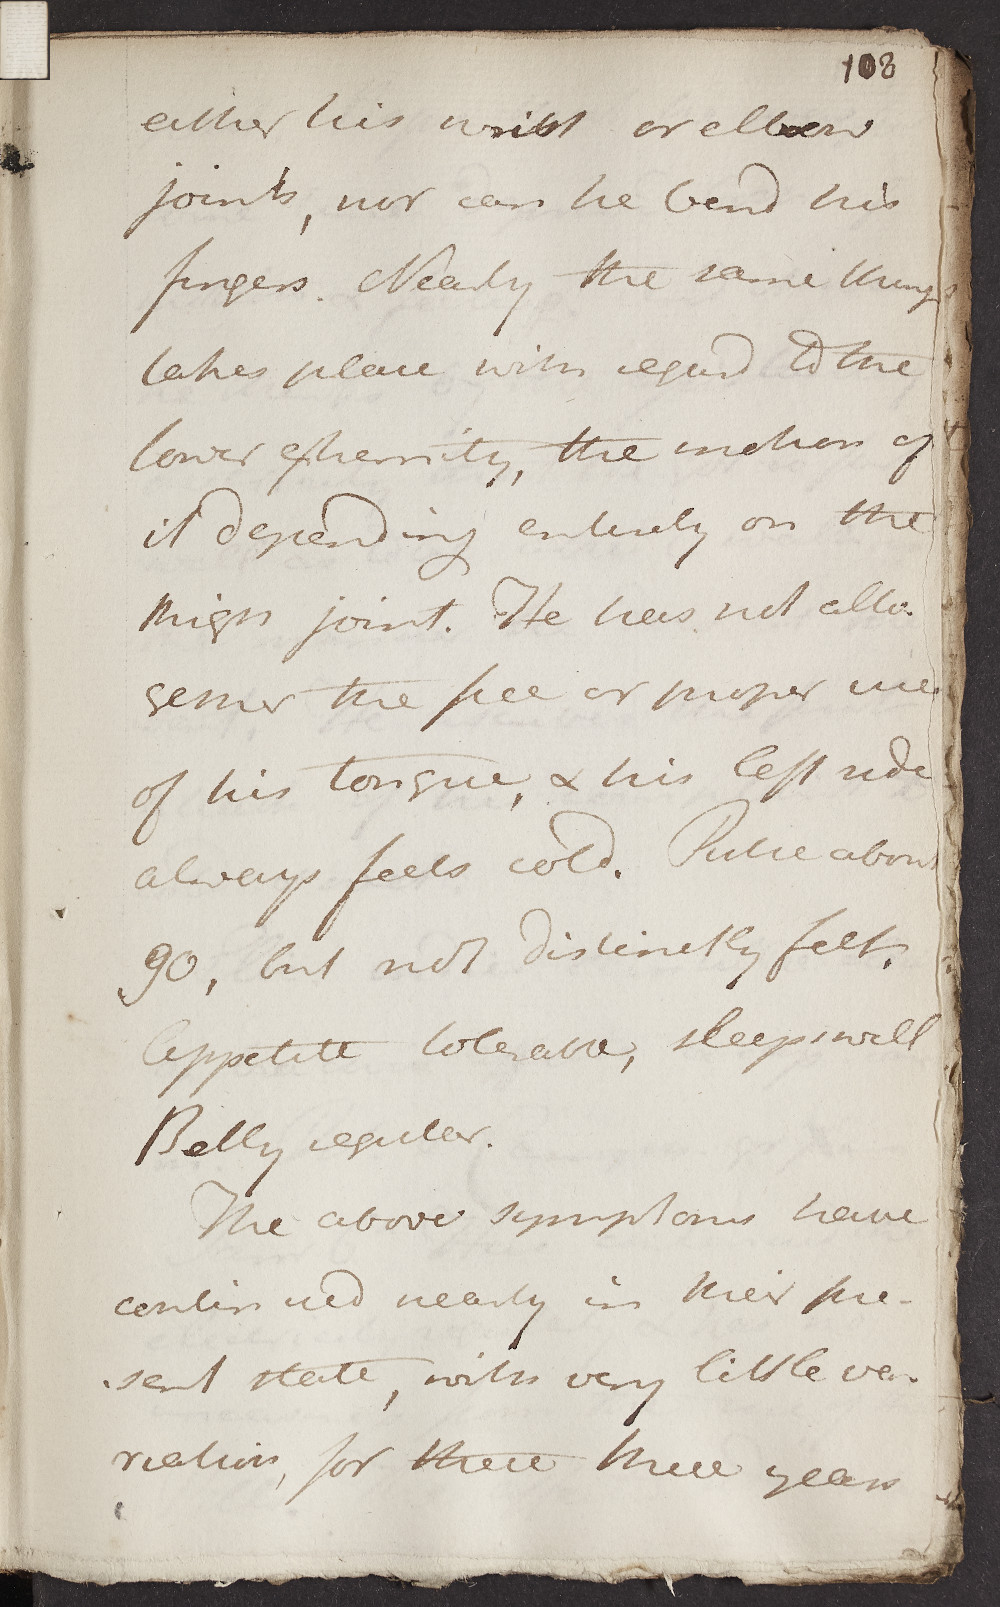 108
either his wrist or elbow
joints, nor can he bend his
fingers. Nearly the same thing
takes place with regard to the
lower extremity, the motion of
it depending entirely on the
thigh joint. He has not alto-
gether the free or proper use
of his tongue, & his left side
always feels cold. Pulse about
90, but not distinctly felt,
Appetite tolerable, sleeps well
Belly regular.
The above symptoms have
continued nearly in their pre-
sent state, with very little va-
riation, for these three years